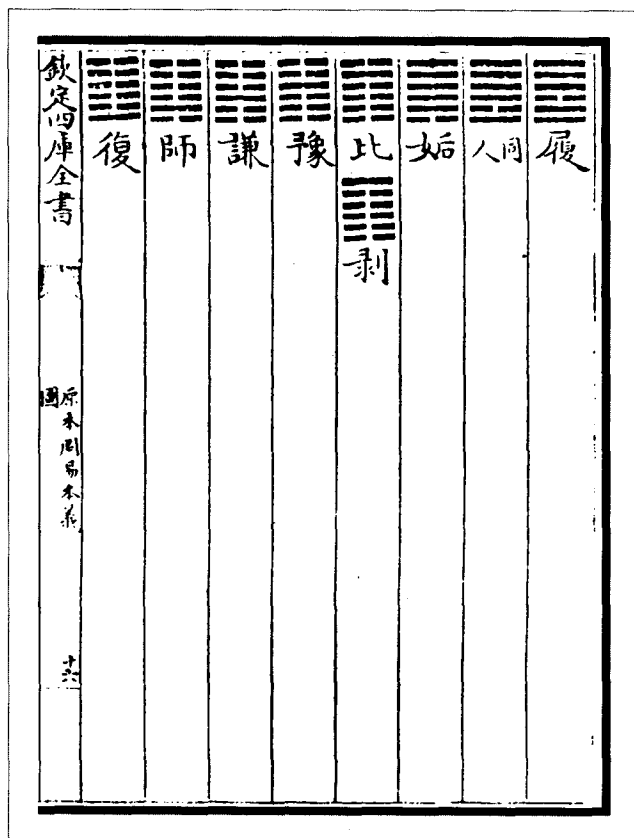 履
同人
姤
比
剥
豫
謙
師
復
欽定四庫全書
原本周易本義
圖
十六